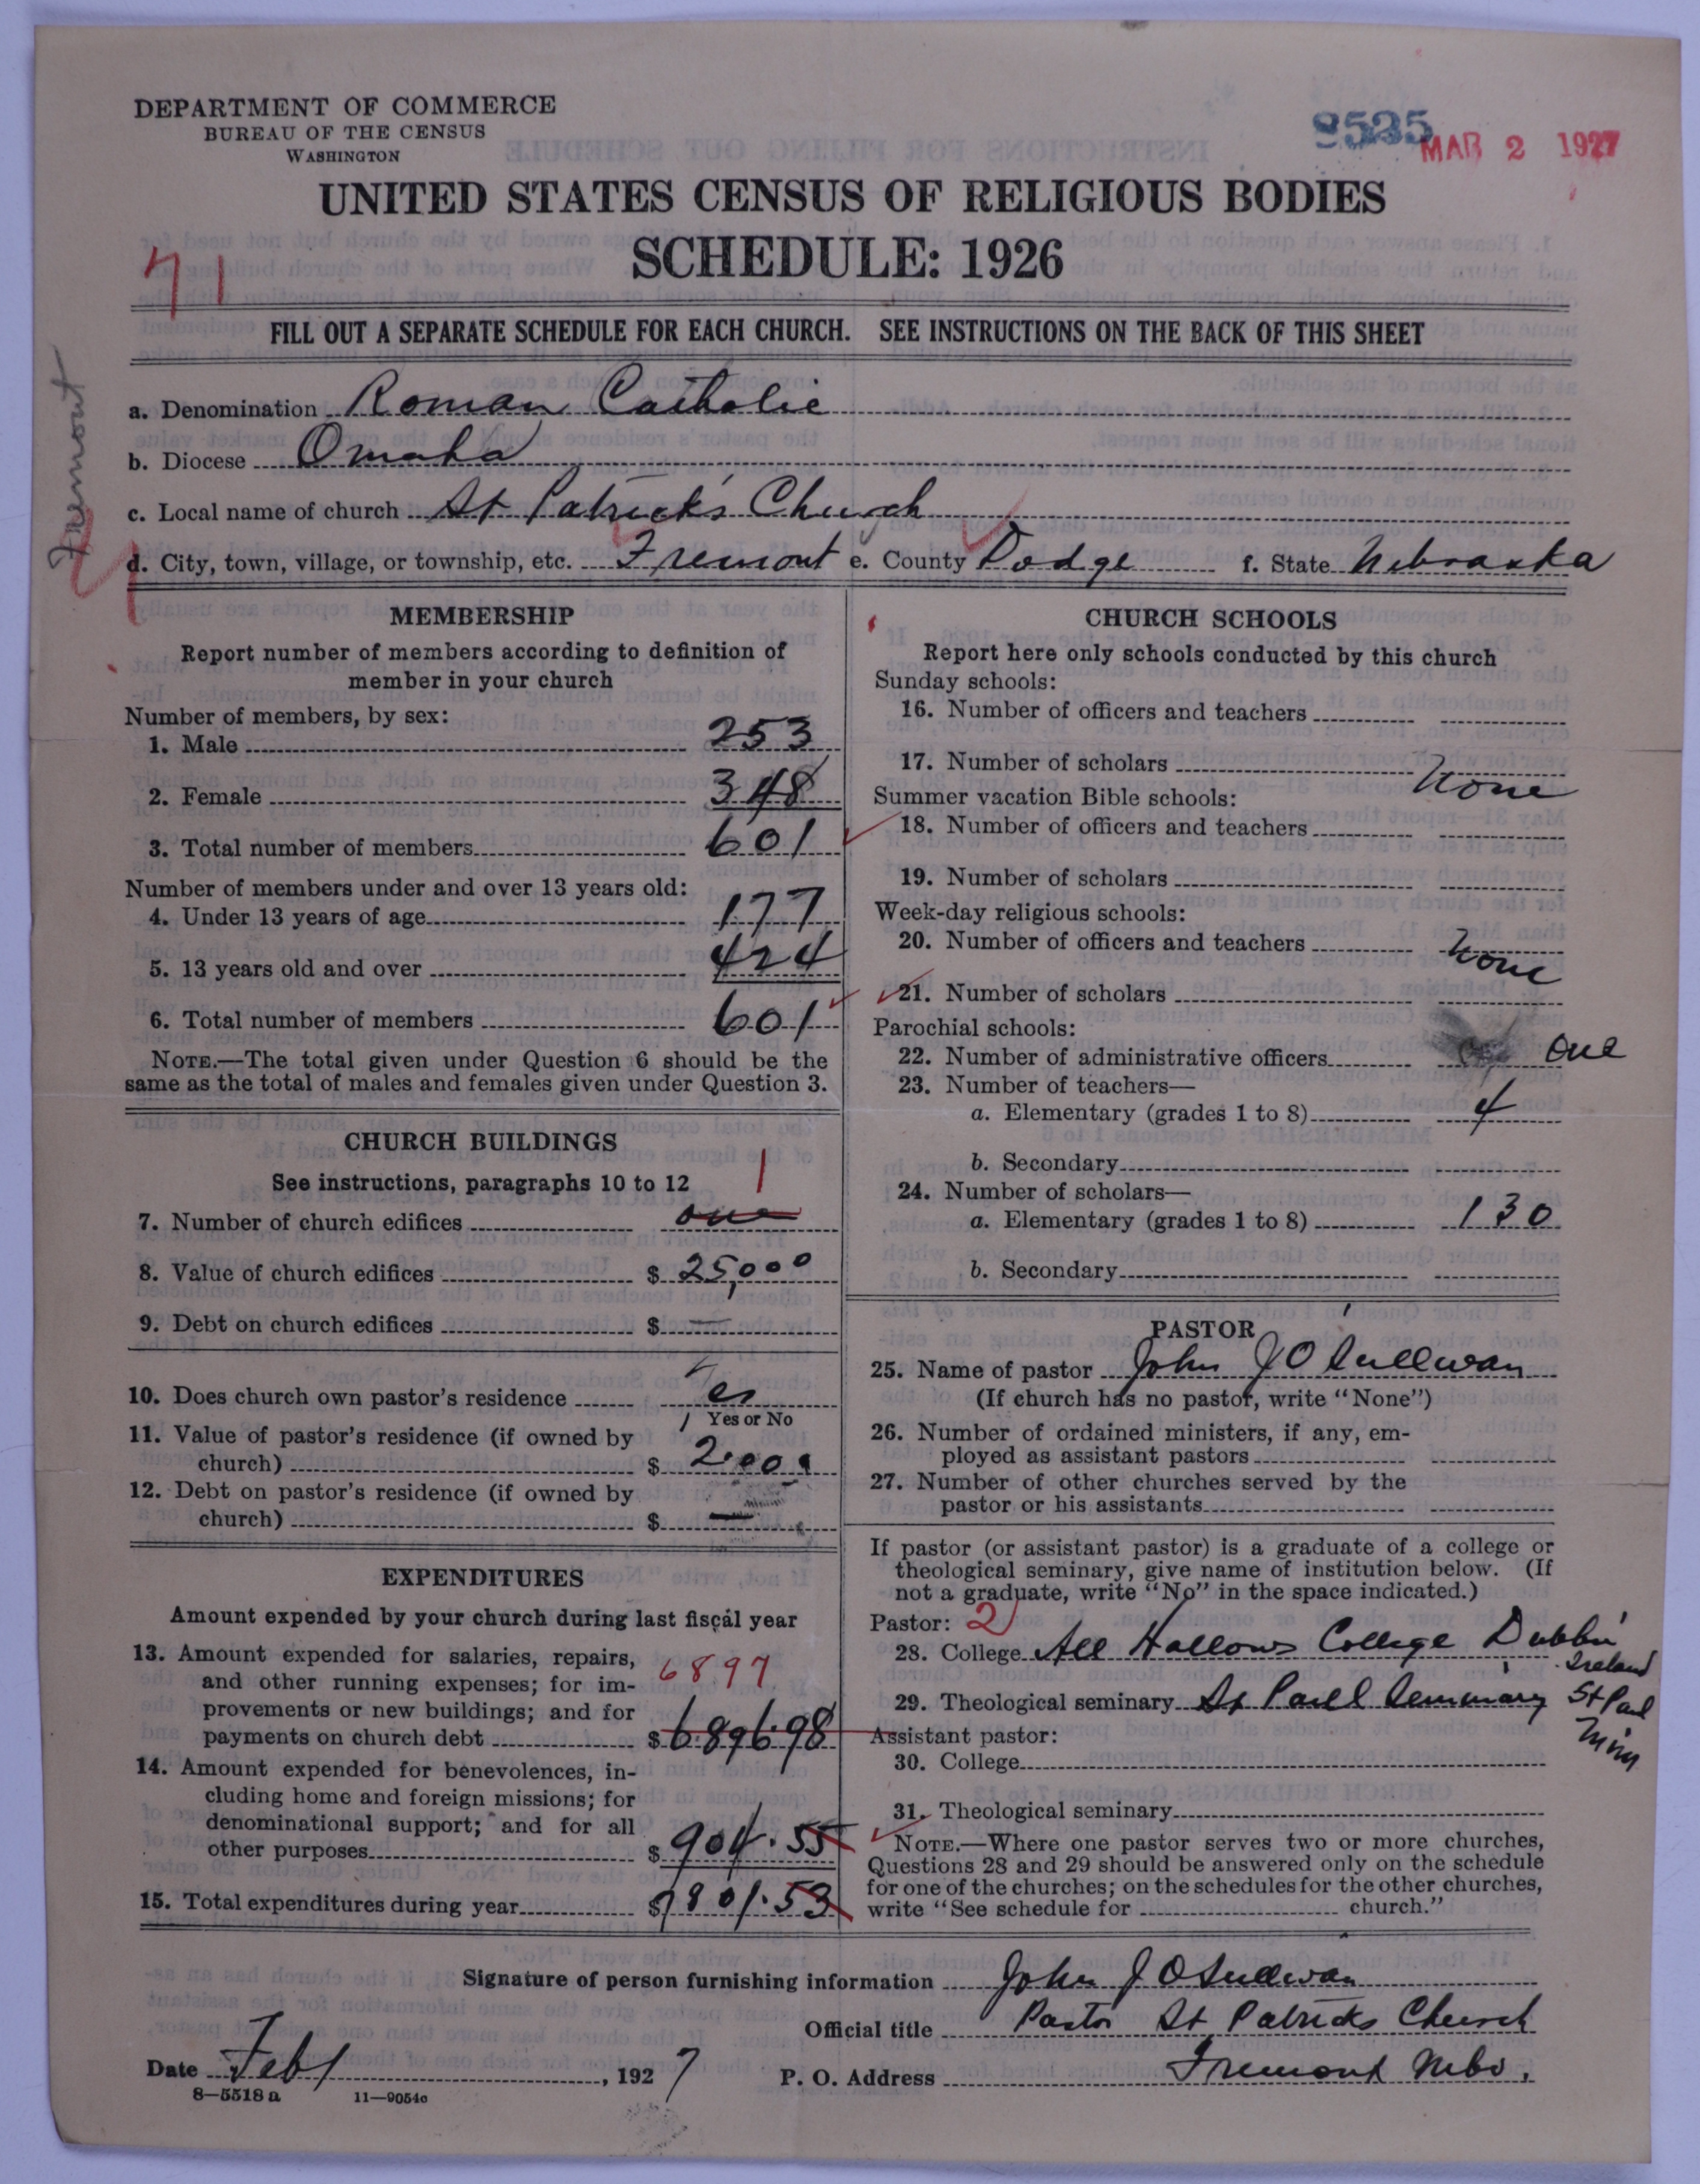 DEPARTMENT OF COMMERCE
BUREAU OF THE CENSUS
WASHINGTON
MAR 2 1927
UNITED STATES CENSUS OF RELIGIOUS BODIES
SCHEDULE: 1926
71
FILL OUT A SEPARATE SCHEDULE FOR EACH CHURCH. SEE INSTRUCTIONS ON THE BACK OF THIS SHEET
Fremont
a. Denomination Roman Catholic
b. Diocese Omaha
c. Local name of church St Patrick's Church
d. City, town, village, or township, etc. Fremont e. County Dodge f. State Nebraska
MEMBERSHIP
Report number of members according to definition of
member in your church
Number of members, by sex:
1. Male 253
2. Female 348
3. Total number of members 601
Number of members under and over 13 years old:
4. Under 13 years of age 177
5. 13 years old and over 424
6. Total number of members 601
NOTE.—The total given under Question 6 should be the
same as the total of males and females given under Question 3.
CHURCH BUILDINGS
See instructions, paragraphs 10 to 12
1
7. Number of church edifices one
8. Value of church edifices $ 25,000
9. Debt on church edifices $ —
10. Does church own pastor's residence Yes
Yes or No
11. Value of pastor's residence (if owned by
church) $ 2000
12. Debt on pastor's residence (if owned by
church) $ —
EXPENDITURES
Amount expended by your church during last fiscal year
13. Amount expended for salaries, repairs,
and other running expenses; for im- 6897
provements or new buildings; and for
payments on church debt $ 6896.98
14. Amount expended for benevolences, in-
cluding home and foreign missions; for
denominational support; and for all
other purposes $ 904.55
15. Total expenditures during year $ 7801.53
CHURCH SCHOOLS
Report here only schools conducted by this church
Sunday schools:
16. Number of officers and teachers
17. Number of scholars None
Summer vacation Bible schools:
18. Number of officers and teachers
19. Number of scholars
Week-day religious schools:
20. Number of officers and teachers None
21. Number of scholars
Parochial schools:
22. Number of administrative officers one
23. Number of teachers—
a. Elementary (grades 1 to 8) 4
b. Secondary
24. Number of scholars—
a. Elementary (grades 1 to 8) 130
b. Secondary
PASTOR
25. Name of pastor John J O'Sullivan
(If church has no pastor, write "None")
26. Number of ordained ministers, if any, em-
ployed as assistant pastors
27. Number of other churches served by the
pastor or his assistants
If pastor (or assistant pastor) is a graduate of a college or
theological seminary, give name of institution below. (If
not a graduate, write "No" in the space indicated.)
Pastor: 2
28. College All Hallows College Dublin
Ireland
29. Theological seminary St Paul Seminary St Paul
Minn
Assistant pastor:
30. College
31. Theological seminary
NOTE.—Where one pastor serves two or more churches,
Questions 28 and 29 should be answered only on the schedule
for one of the churches; on the schedules for the other churches,
write "See schedule for church."
Signature of person furnishing information John J O Sullivan
Official title Pastor St Patricks Church
Date Feb 1, 1927 P. O. Address Fremont Nebr.
8—5518 a 11—9054c